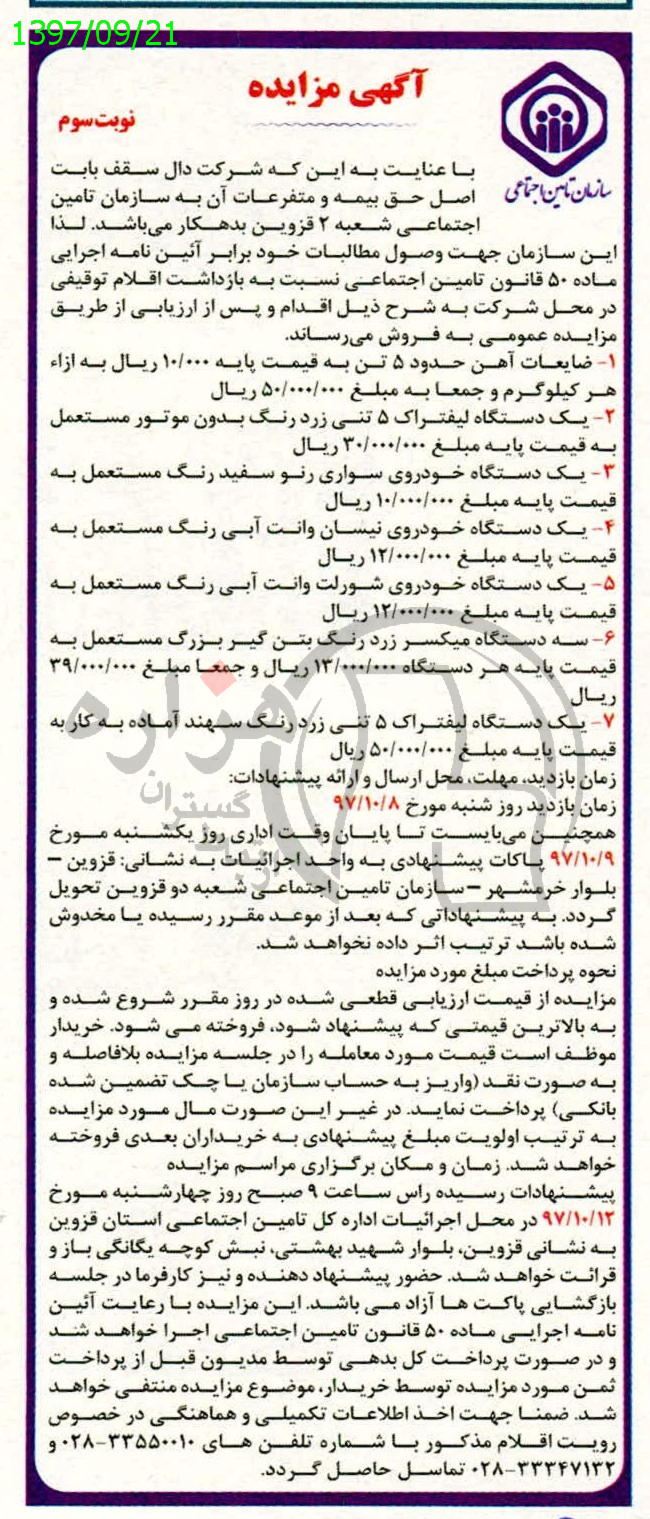 1397/09/21
آگهی مزایده
نوبت سوم
سازمان تامین اجتماعی
با عنایت به این که شرکت دال سقف بابت
اصل حق بیمه و متفرعات آن به سازمان تامین
اجتماعی شعبه ۲ قزوین بدهکار می‌باشد. لذا
این سازمان جهت وصول مطالبات خود برابر آئین نامه اجرایی
ماده ۵۰ قانون تامین اجتماعی نسبت به بازداشت اقلام توقیفی
در محل شرکت به شرح ذیل اقدام و پس از ارزیابی از طریق
مزایده عمومی به فروش می‌رساند.
۱- ضایعات آهن حدود ۵ تن به قیمت پایه ۱۰/۰۰۰ ریال به ازاء
هر کیلوگرم و جمعا به مبلغ ۵۰/۰۰۰/۰۰۰ ریال
۲- یک دستگاه لیفتراک ۵ تنی زرد رنگ بدون موتور مستعمل
به قیمت پایه مبلغ ۳۰/۰۰۰/۰۰۰ ریال
۳- یک دستگاه خودروی سواری رنو سفید رنگ مستعمل به
قیمت پایه مبلغ ۱۰/۰۰۰/۰۰۰ ریال
۴- یک دستگاه خودروی نیسان وانت آبی رنگ مستعمل به
قیمت پایه مبلغ ۱۲/۰۰۰/۰۰۰ ریال
۵- یک دستگاه خودروی شورلت وانت آبی رنگ مستعمل به
قیمت پایه مبلغ ۱۲/۰۰۰/۰۰۰ ریال
۶- سه دستگاه میکسر زرد رنگ بتن گیر بزرگ مستعمل به
قیمت پایه هر دستگاه ۱۳/۰۰۰/۰۰۰ ریال و جمعا مبلغ ۳۹/۰۰۰/۰۰۰
ریال
۷- یک دستگاه لیفتراک ۵ تنی زرد رنگ سهند آماده به کار به
قیمت پایه مبلغ ۵۰/۰۰۰/۰۰۰ ریال
زمان بازدید، مهلت، محل ارسال و ارائه پیشنهادات:
زمان بازدید روز شنبه مورخ ۹۷/۱۰/۸
همچنین می‌بایست تا پایان وقت اداری روز یکشنبه مورخ
۹۷/۱۰/۹ پاکات پیشنهادی به واحد اجرائیات به نشانی: قزوین –
بلوار خرمشهر – سازمان تامین اجتماعی شعبه دو قزوین تحویل
گردد. به پیشنهاداتی که بعد از موعد مقرر رسیده یا مخدوش
شده باشد ترتیب اثر داده نخواهد شد.
نحوه پرداخت مبلغ مورد مزایده
مزایده از قیمت ارزیابی قطعی شده در روز مقرر شروع شده و
به بالاترین قیمتی که پیشنهاد شود، فروخته می شود. خریدار
موظف است قیمت مورد معامله را در جلسه مزایده بلافاصله و
به صورت نقد (واریز به حساب سازمان یا چک تضمین شده
بانکی) پرداخت نماید. در غیر این صورت مال مورد مزایده
به ترتیب اولویت مبلغ پیشنهادی به خریداران بعدی فروخته
خواهد شد. زمان و مکان برگزاری مراسم مزایده
پیشنهادات رسیده راس ساعت ۹ صبح روز چهارشنبه مورخ
۹۷/۱۰/۱۲ در محل اجرائیات اداره کل تامین اجتماعی استان قزوین
به نشانی قزوین، بلوار شهید بهشتی، نبش کوچه یگانگی باز و
قرائت خواهد شد. حضور پیشنهاد دهنده و نیز کارفرما در جلسه
بازگشایی پاکت ها آزاد می باشد. این مزایده با رعایت آئین
نامه اجرایی ماده ۵۰ قانون تامین اجتماعی اجرا خواهد شد
و در صورت پرداخت کل بدهی توسط مدیون قبل از پرداخت
ثمن مورد مزایده توسط خریدار، موضوع مزایده منتفی خواهد
شد. ضمنا جهت اخذ اطلاعات تکمیلی و هماهنگی در خصوص
رویت اقلام مذکور با شماره تلفن های ۳۳۵۵۰۰۱۰-۰۲۸ و
۳۳۳۴۷۱۳۲-۰۲۸ تماسل حاصل گردد.
هزاره
گستران